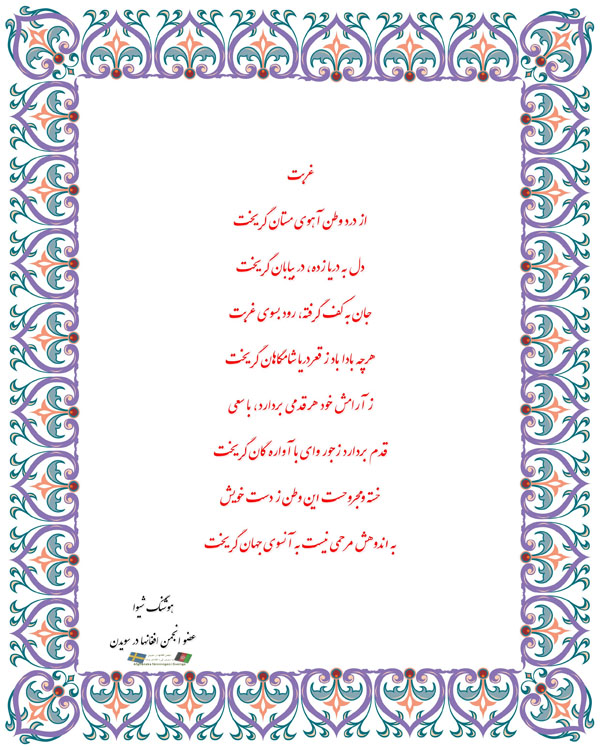 غربت
از درد وطن آهوی مستان گریخت
دل به دریا زده، در بیابان گریخت
جان به کف گرفته، رود بسوی غربت
هرچه بادا باد ز قعر دریا شامگاهان گریخت
ز آرامش خود هر قدمی بردارد، با سعی
قدم بردارد ز جور وای با آواره گان گریخت
خسته ومجروحست این وطن ز دست خویش
به اندوهش مرحمی نیست به آنسوی جهان گریخت
هوشنگ شیوا
عضو انجمن افغانها در سویدن